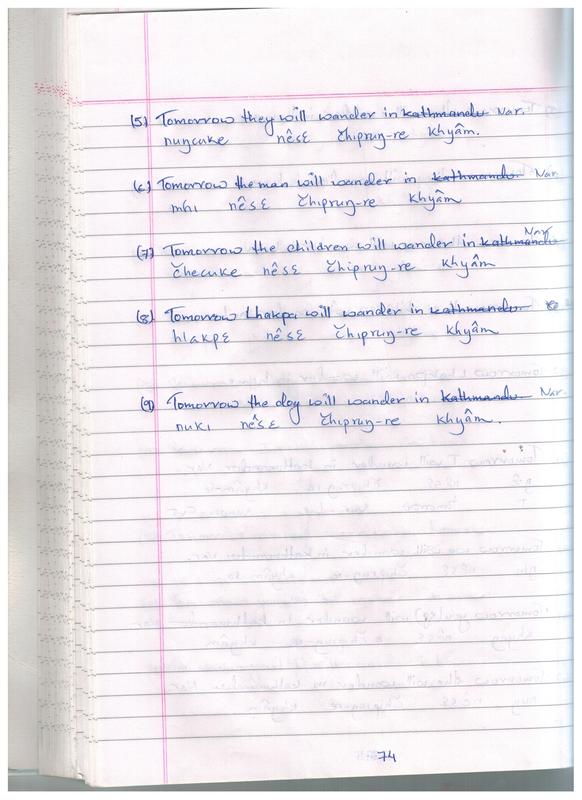 (5) Tomorrow they will wander in kathmandu Nar.
nuŋcuke nêsɛ čhıpruŋ-re khyâm.
(6) Tomorrow the man will wander in kathmandu Nar
mhı nêsɛ čhıpruŋ-re khyâm
(7) Tomorrow the children will wander in kathmandu Nar
čhecuke nêsɛ čhipruŋ-re khyâm
(8) Tomorrow Lhakpa will wander in kathmandu
hlakpɛ nêsɛ čhıpruŋ-re khyâm
(9) Tomorrow the dog will wander in kathmandu Nar.
nukı nêsɛ čhıpruŋ-re khyâm.
74